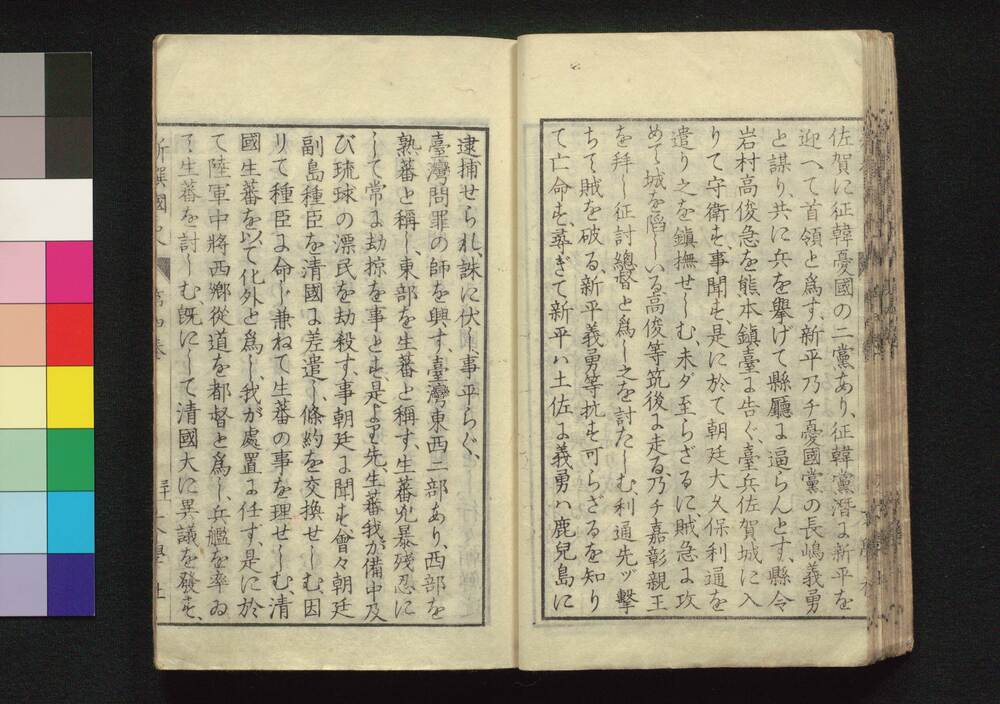 佐賀に征韓憂國の二黨あり、征韓黨潛に新平を
迎へて首領と爲す、新平乃チ憂國黨の長嶋義勇
と謀り、共に兵を擧げて縣廳に逼らんとす、縣令
岩村高俊急を熊本鎮臺に告ぐ、臺兵佐賀城に入
りて守衛す、事聞す是に於て朝廷大久保利通を
遣り之を鎭撫せしむ、未ダ至らざるに賊急に攻
めて城を陷しいる高俊等筑後に走る乃チ嘉彰親王
を拜し征討總督と爲し之を討たしむ利通先ヅ擊
ちて賊を破る、新平義勇等抗す可らざるを知り
て亡命す、尋ぎて新平ハ土佐に義勇ハ鹿兒島に
逮捕せられ、誅に伏し事平らぐ、
臺灣問罪の師を興す、臺灣東西二部あり、西部を
熟蕃と稱し、東部を生蕃と稱す、生蕃兇暴残忍に
して常に劫掠を事とす、是より先、生蕃我が備中及
び琉球の漂民を劫殺す、事朝廷に聞す、會々朝廷
副島種臣を清國に差遣し、條約を交換せしむ、因
りて種臣に命じ兼ねて生蕃の事を理せしむ清
國生蕃を以て化外と爲し、我が處置に任す、是に於
て陸軍中將西鄕從道を都督と爲し、兵艦を率ゐ
て生蕃を討しむ、旣にして清國大に異議を發す、
新撰國史 第四卷 三十 文學社